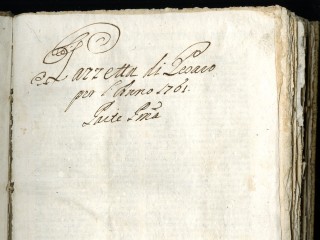 Gazzetta di Pesaro
per l'Anno 1761.
Parte Pma